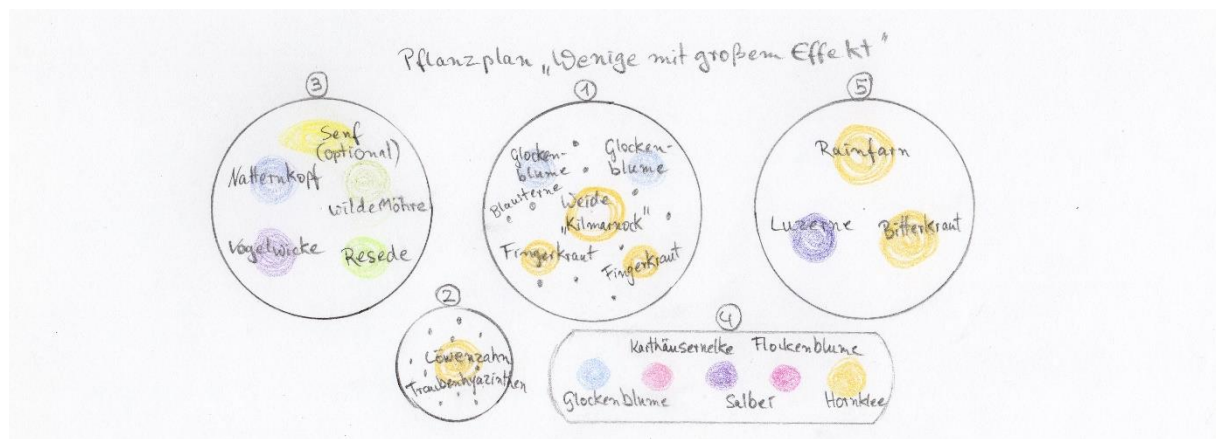 Pflanzplan „Wenige mit großem Effekt"
3
Senf
(optional)
Natternkopf
wilde Möhre
Vogelwicke
Resede
1
Glocken-
blume
Glocken-
blume
Blausterne
Weide
„Kilmarnock"
Fingerkraut
Fingerkraut
5
Rainfarn
Luzerne
Bitterkraut
2
Löwenzahn
Traubenhyazinthen
4
Karthäusernelke
Flockenblume
Glockenblume
Salbei
Hornklee